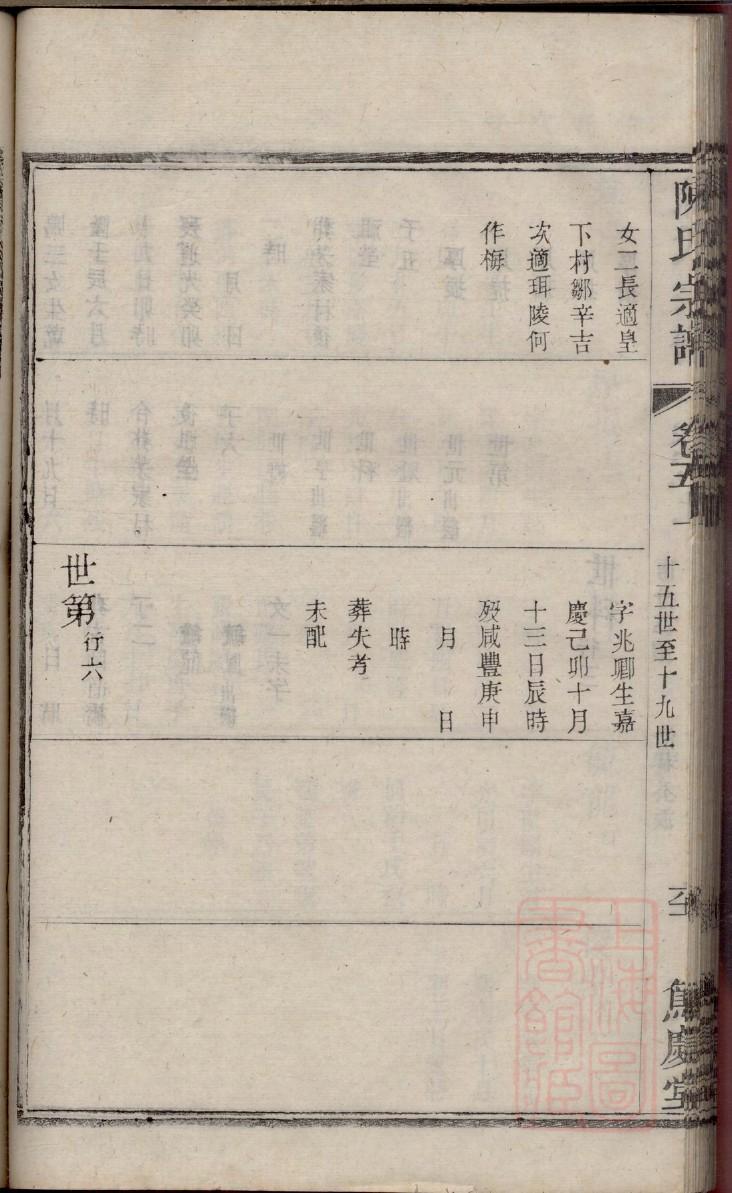 陳氏宗譜
卷五
十五世至十九世
女二長適皇
下村鄒辛吉
次適珥陵何
作梅
字兆卿生嘉
慶己卯十月
十三日辰時
歿咸豐庚申
月　日
時
葬失考
未配
世第行六
上海圖
書館藏